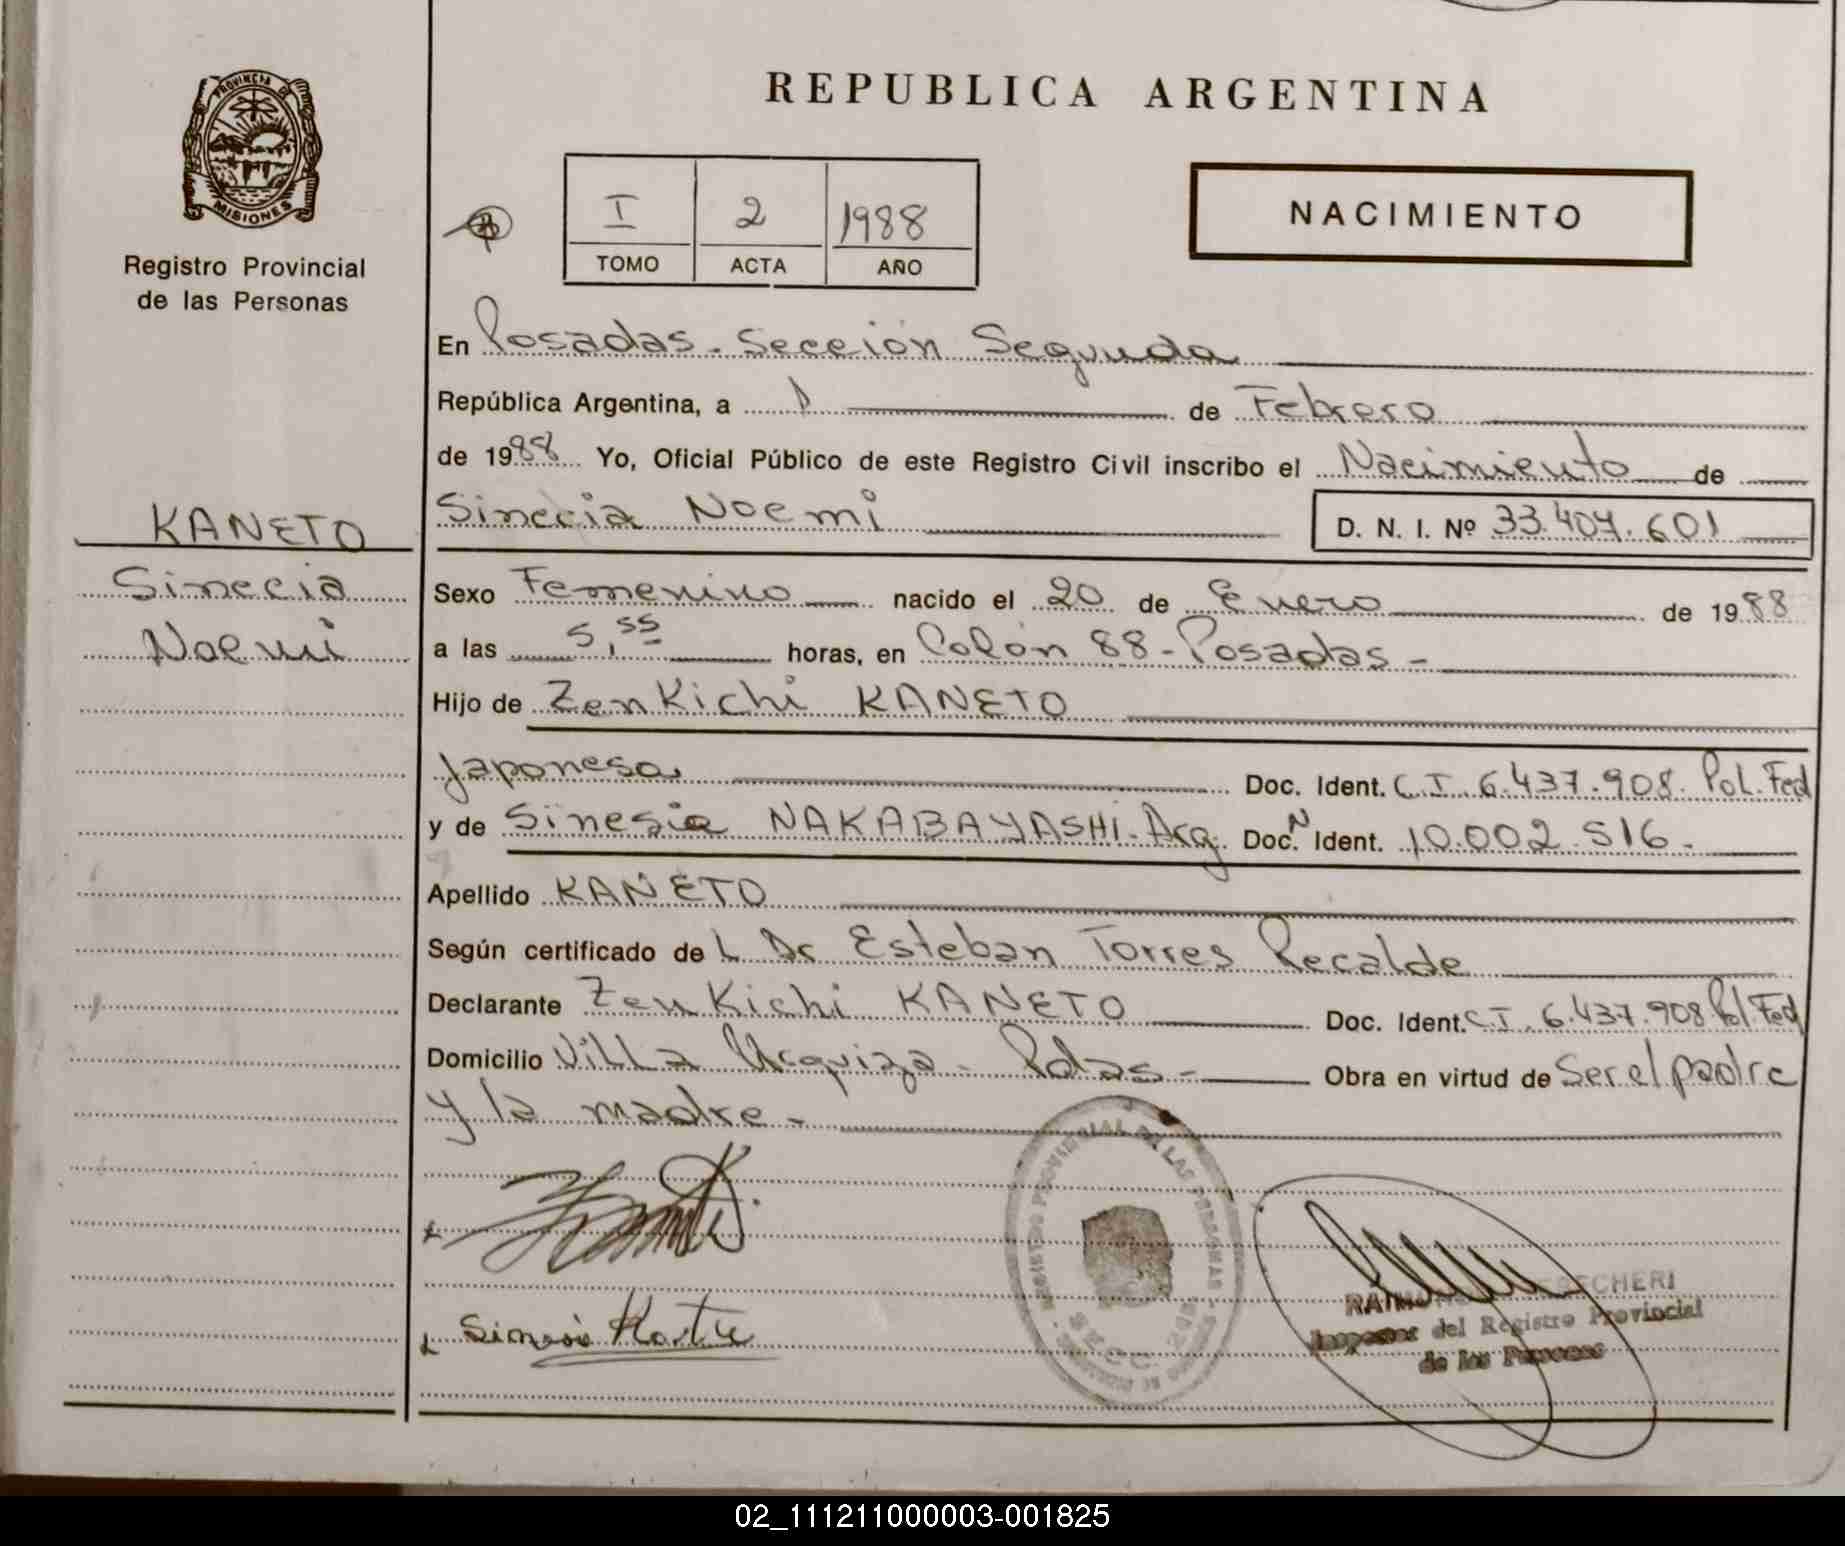 PROVINCIA DE
MISIONES
Registro Provincial
de las Personas
KANETO
Sinecia
Noemi
REPUBLICA ARGENTINA
I 2 1988
TOMO ACTA AÑO
NACIMIENTO
En Posadas. Sección Segunda
República Argentina, a 1 de Febrero
de 1988 Yo, Oficial Público de este Registro Civil inscribo el Nacimiento de
Sinecia Noemi D. N. I. Nº 33.407.601
Sexo Femenino nacido el 20 de Enero de 1988
a las 5,55 horas, en Colón 88 - Posadas -
Hijo de ZenKichi KANETO
Japonesa Doc. Ident. C.I. 6.437.908. Pol. Fed
y de Sinesia NAKABAYASHI. Arg. Doc. N Ident. 10.002.516.-
Apellido KANETO
Según certificado de L Dr Esteban Torres Recalde
Declarante ZenKichi KANETO Doc. Ident. C.I. 6.437.908 Pol Fed
Domicilio Villa Urquiza - Pdas.- Obra en virtud de Ser el padre
y la madre.-
REGISTRO PROVINCIAL DE LAS PERSONAS
SECC. 2da
Inspector del Registro Provincial
de las Personas
02_111211000003-001825